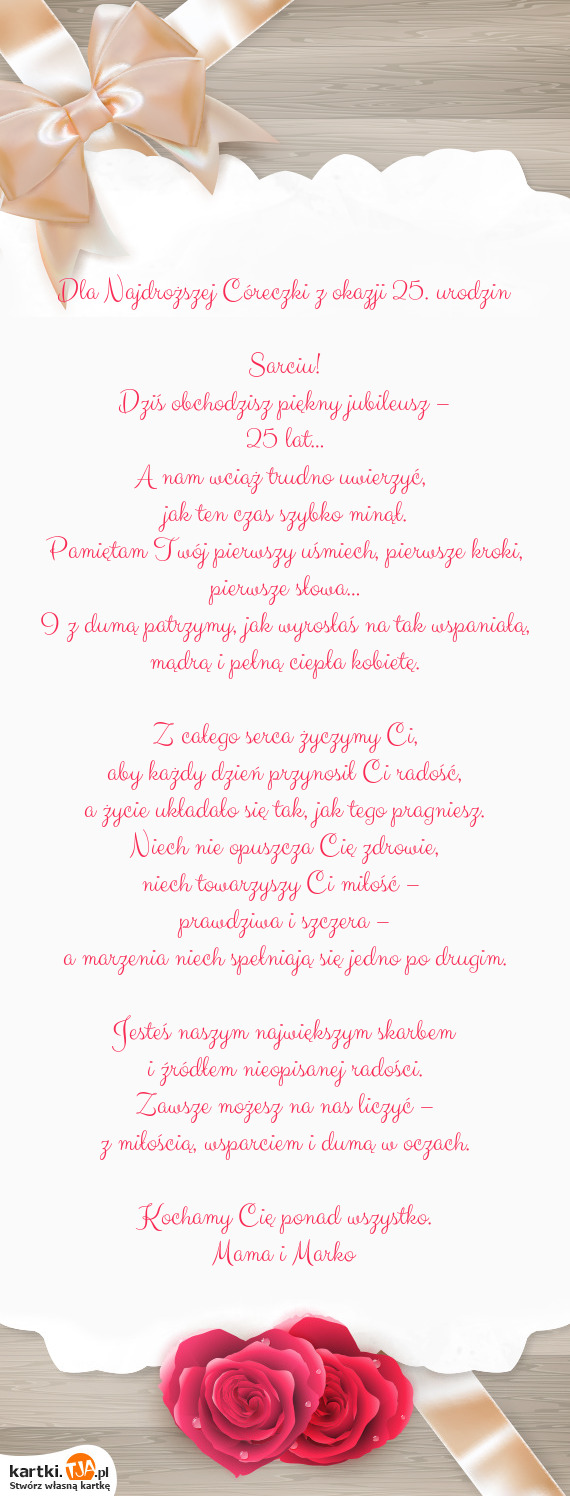 Dla Najdroższej Córeczki z okazji 25. urodzin
Sarciu!
Dziś obchodzisz piękny jubileusz –
25 lat...
A nam wciąż trudno uwierzyć,
jak ten czas szybko minął.
Pamiętam Twój pierwszy uśmiech, pierwsze kroki,
pierwsze słowa...
I z dumą patrzymy, jak wyrosłaś na tak wspaniałą,
mądrą i pełną ciepła kobietę.
Z całego serca życzymy Ci,
aby każdy dzień przynosił Ci radość,
a życie układało się tak, jak tego pragniesz.
Niech nie opuszcza Cię zdrowie,
niech towarzyszy Ci miłość –
prawdziwa i szczera –
a marzenia niech spełniają się jedno po drugim.
Jesteś naszym największym skarbem
i źródłem nieopisanej radości.
Zawsze możesz na nas liczyć –
z miłością, wsparciem i dumą w oczach.
Kochamy Cię ponad wszystko.
Mama i Marko
kartki.TJA.pl
Stwórz własną kartkę